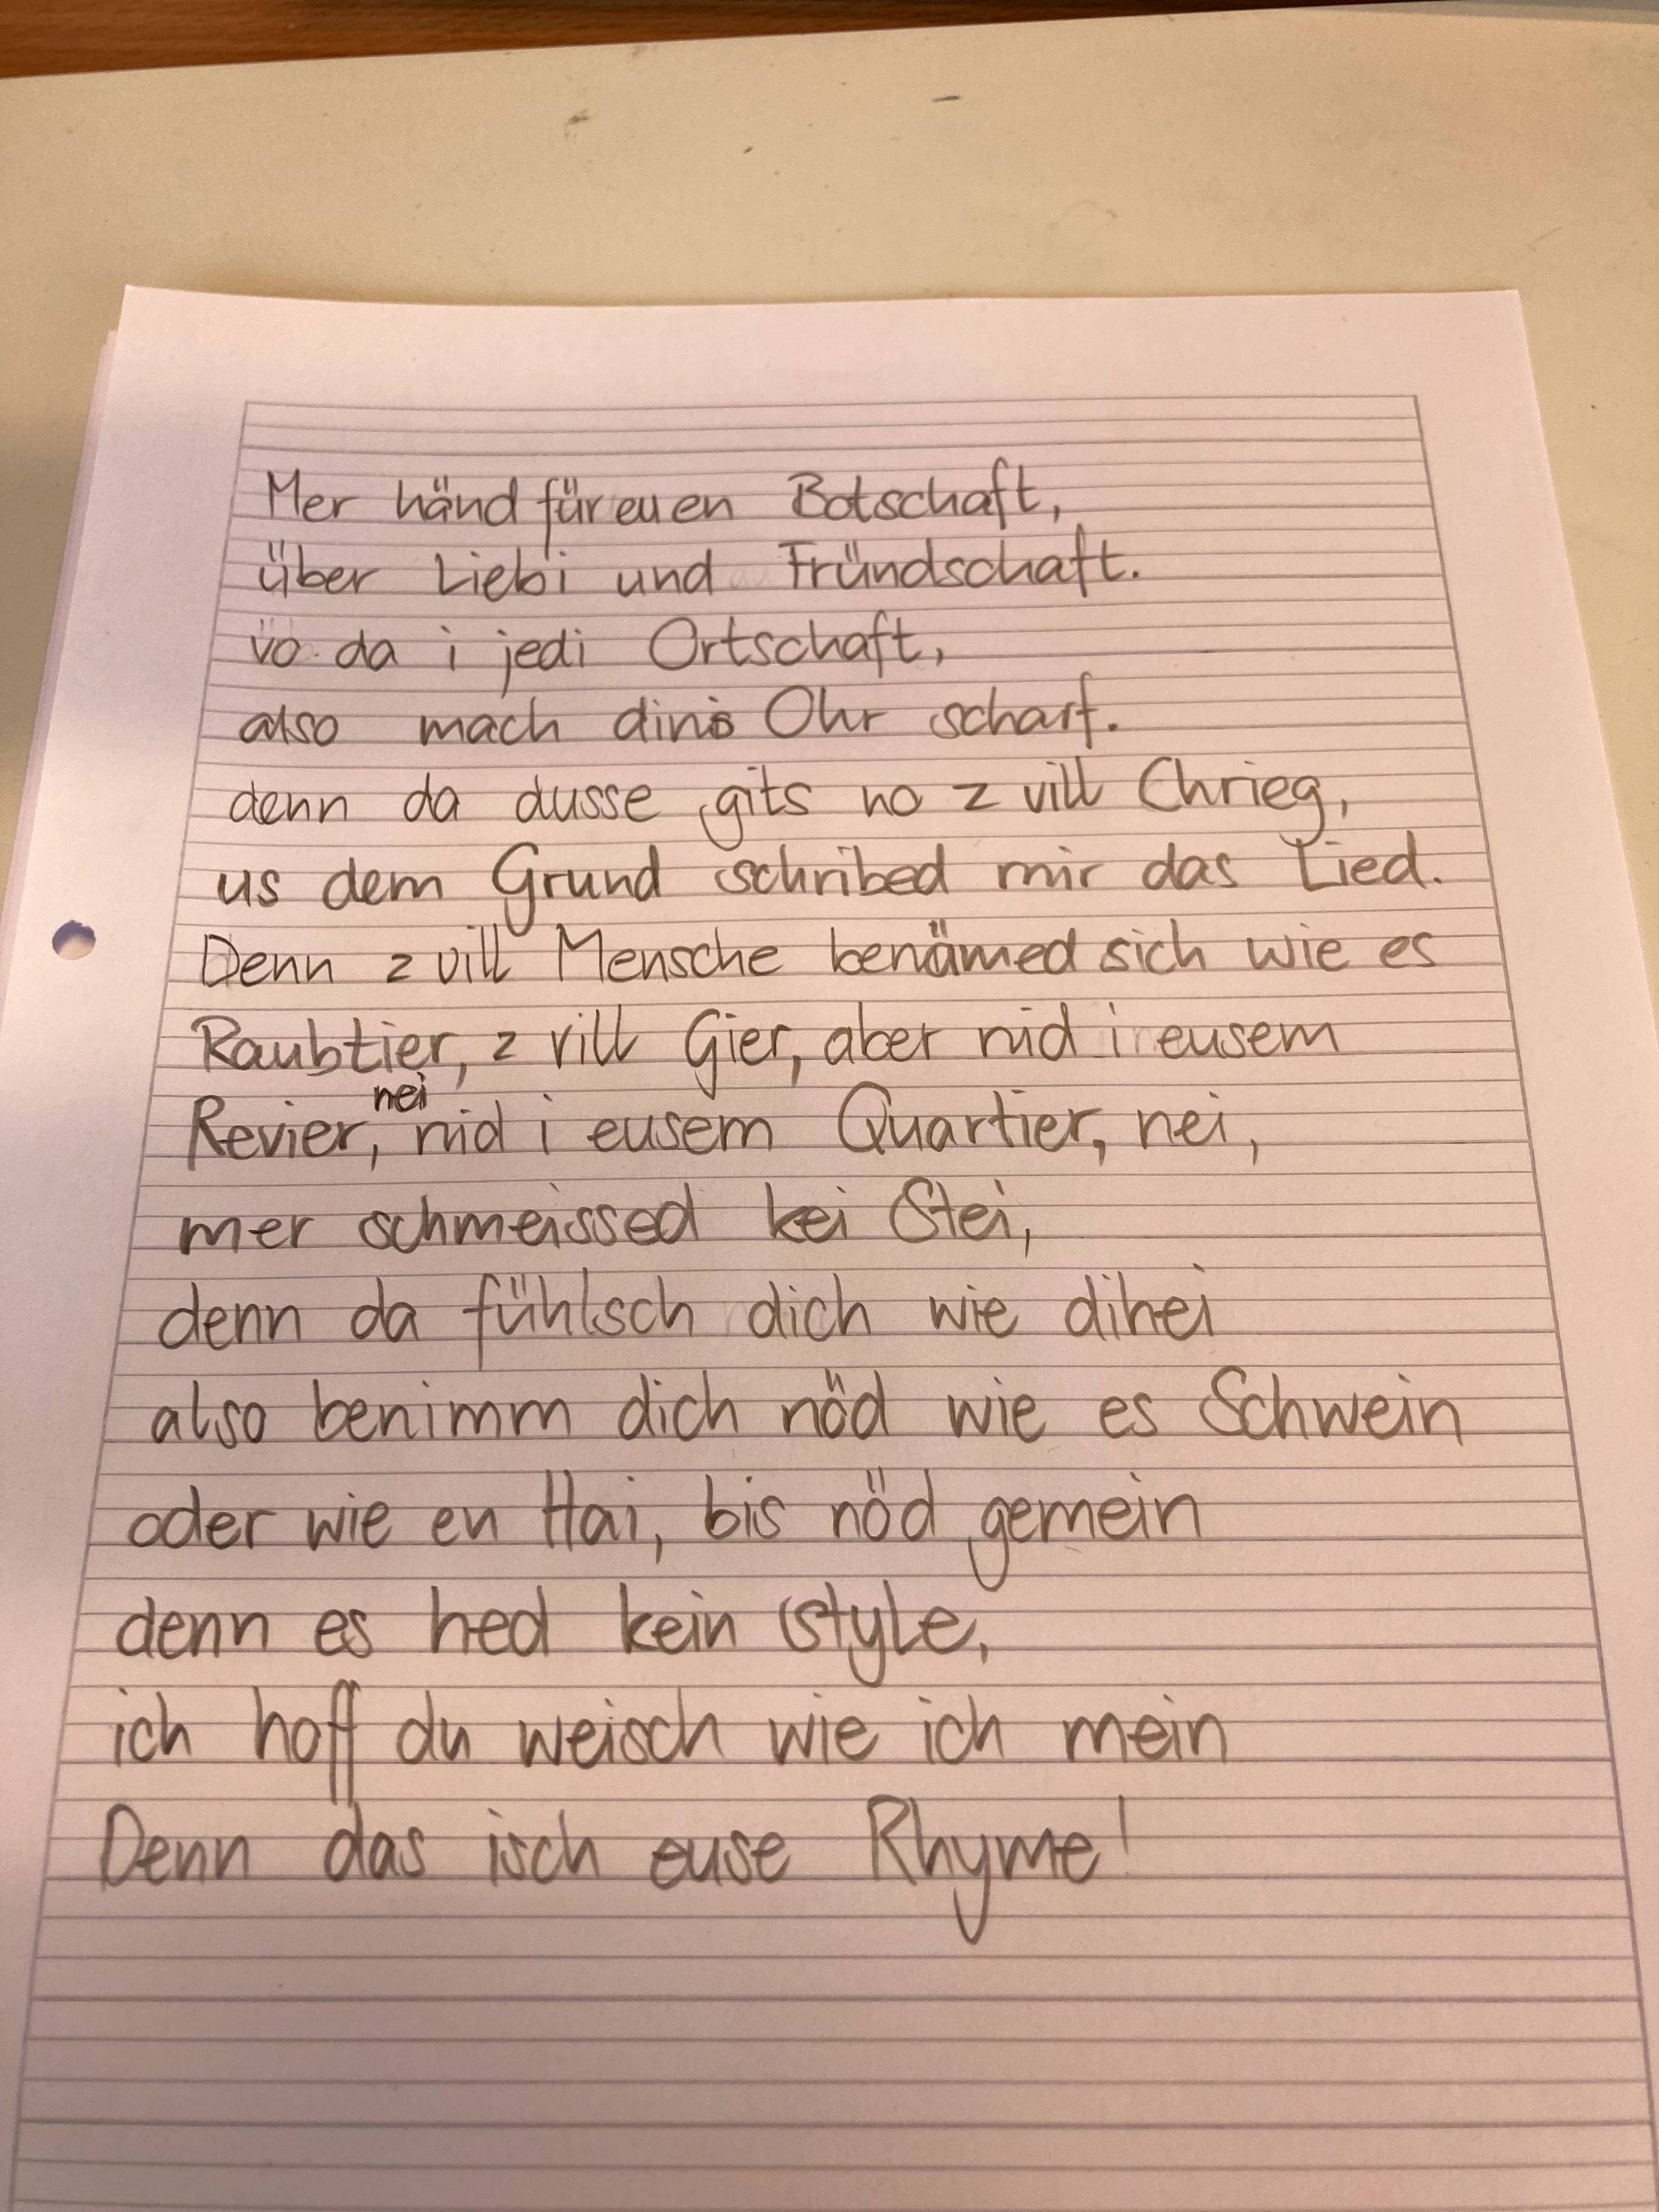 Mer händ für eu en Botschaft,
über Liebi und Fründschaft.
vo da i jedi Ortschaft,
also mach dinis Ohr scharf.
denn da dusse gits no z vill Chrieg,
us dem Grund schribed mir das Lied.
Denn z vill Mensche benämed sich wie es
Raubtier, z vill Gier, aber nid i eusem
nei
Revier, nid i eusem Quartier, nei,
mer schmeissed kei Stei,
denn da fühlsch dich wie dihei
also benimm dich nöd wie es Schwein
oder wie en Hai, bis nöd gemein
denn es hed kein style,
ich hoff du weisch wie ich mein
Denn das isch euse Rhyme!